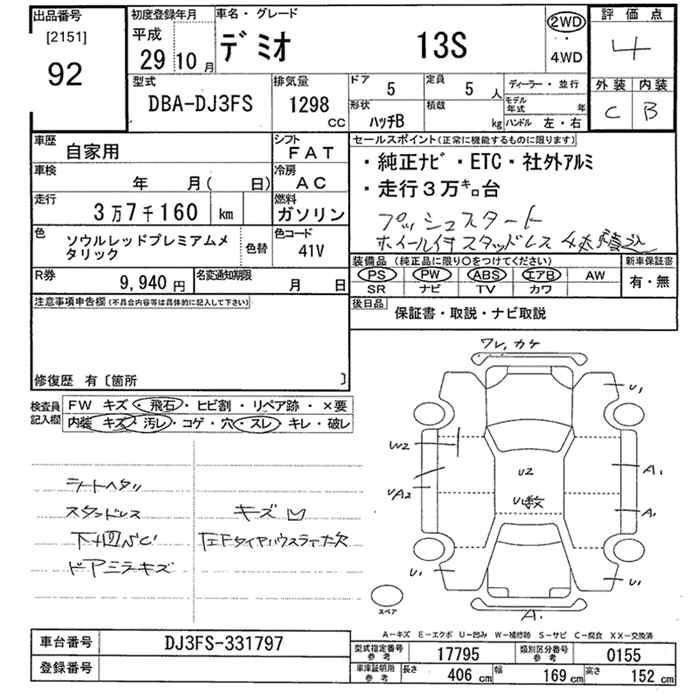 出品番号 初度登録年月 車名・グレード 評価点
[2151]
92
平成
29年10月
デミオ 13S
2WD
・
4WD
4
外装 内装
C B
型式 排気量 ドア 5 定員 5人 ディーラー・並行
DBA-DJ3FS 1298CC 形状 ハッチB 積載 kg モデル年式 年
ハンドル 左・右
車歴 自家用 シフト FAT
セールスポイント(正常に機能するものに限ります)
車検 年 月( 日) 冷房 AC
・純正ナビ・ETC・社外アルミ
走行 3万7千160 km 燃料 ガソリン
・走行3万キロ台
プッシュスタート
ホイール付スタッドレス4本積込
色 ソウルレッドプレミアムメタリック 色替 色コード 41V
装備品(純正品に限り○をつけてください) 新車保証書
PS PW ABS エアB AW 有・無
SR ナビ TV カワ
R券 9,940円 名変通知期限 月 日
後日品 保証書・取説・ナビ取説
注意事項申告欄(不具合内容等は具体的に記入して下さい)
修復歴 有〔箇所 〕
検査員記入欄 FW キズ・飛石・ヒビ割・リペア跡・×要
内装 キズ・汚レ・コゲ・穴・スレ・キレ・破レ
シートヘタリ
スタンドレス キズ凹
下廻サビ
ドアミラーキズ
ワレ,カケ
U1
W2
U2
UA2
A1
U数
A1
U1
U1
スペア
A.
A-キズ E-エクボ U-凹み W-補修跡 S-サビ C-腐食 XX-交換済
車台番号 DJ3FS-331797
登録番号
型式指定番号 参考 17795 類別区分番号 参考 0155
車庫証明用 参考 長さ 406cm 幅 169cm 高さ 152cm